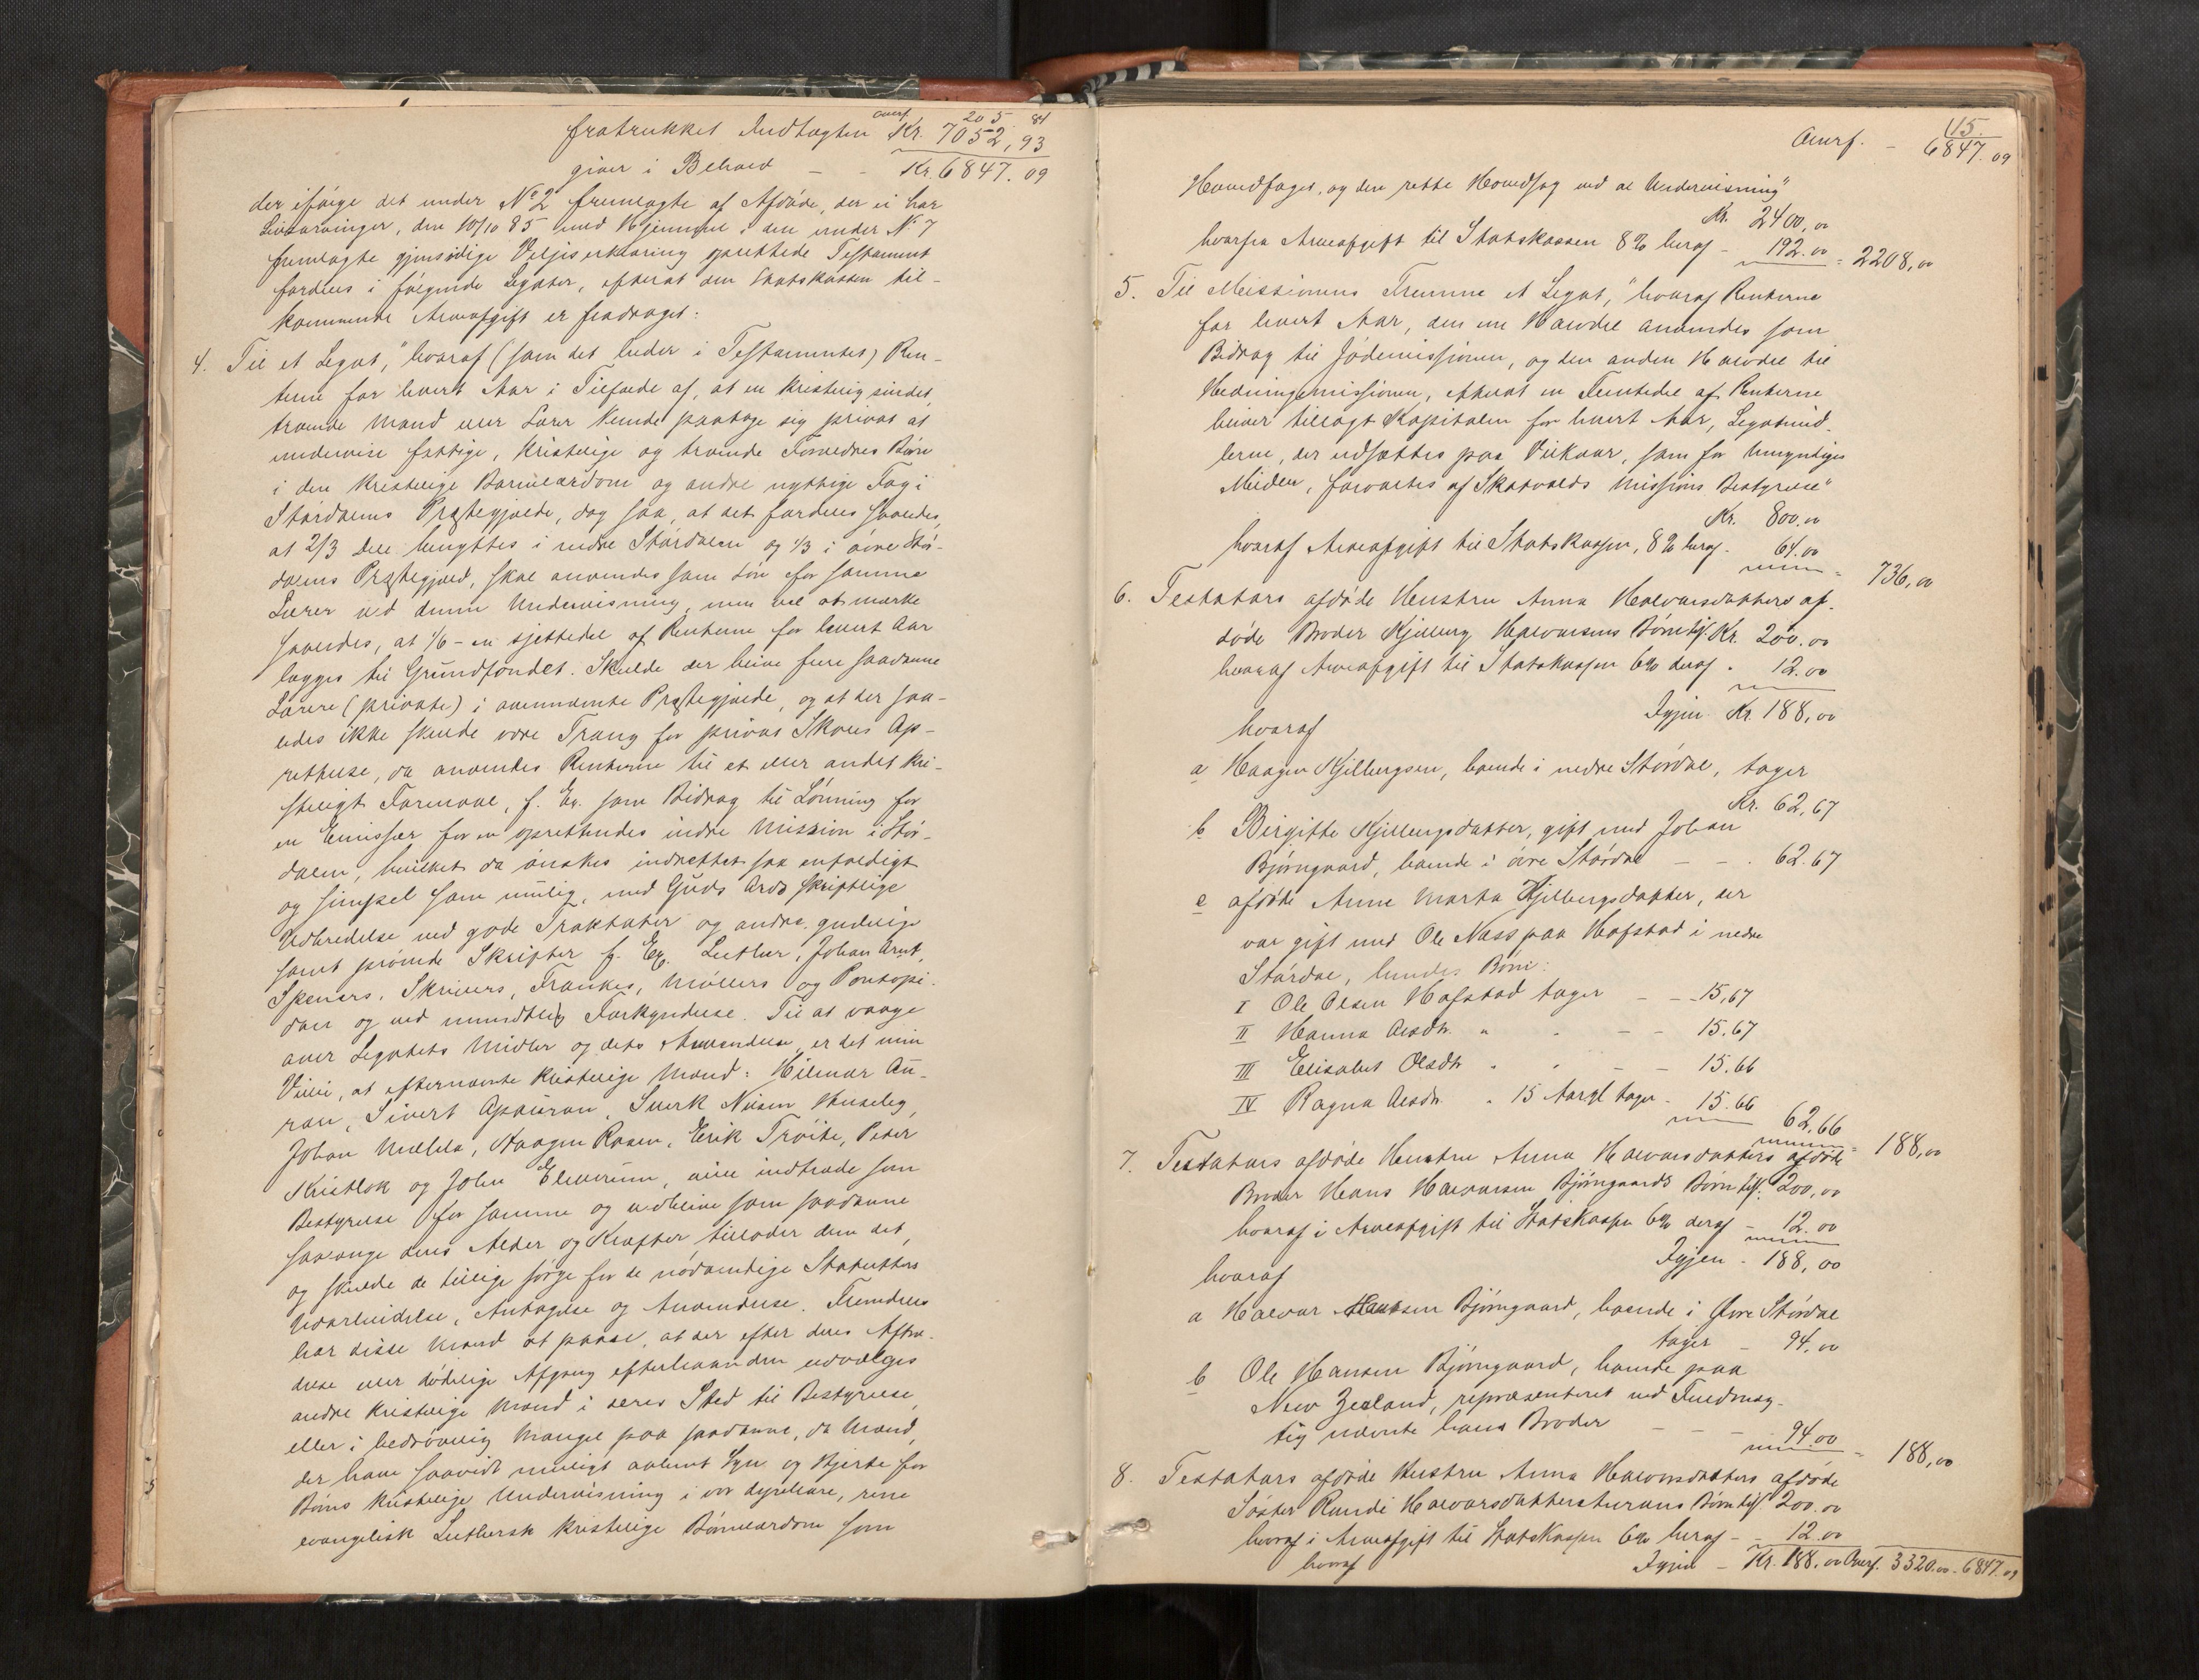 Overf. 205 84
fratrukket Indtægten Kr. 7052,93
giver i Behold - - Kr. 6847.09
der ifølge det under No 2 fremlagte af Afdøde, der ei har
Livsarvinger, den 10/10 85 med Hjemmel i den under No 7
fremlagte gjensidige Viljeserklæring oprettede Testament
fordeles i følgende Legater, efterat den Statskassen til-
kommende Arveafgift er fradraget:
4. Til et Legat, "hvoraf (som det lyder i Testamentet) Ren-
terne for hvert Aar i Tilfælde af, at en kristelig sindet,
troende Mand eller Lærer kunde paatage sig privat at
undervise fattige, kristelige og troende Forældres Børn
i den kristelige Børnelærdom og andre nyttige Fag i
Størdalens Præstegjælde, dog saa, at det fordeles saaledes,
at 2/3 Dele benyttes i nedre Størdalen og 1/3 i øvre Stør-
dalens Præstegjæld, skal anvendes som Løn for samme
Lærer ved denne Undervisning, men vel at mærke
saaledes, at 1/6 - en sjettedel af Renterne for hvert Aar
lægges til Grundfondet. Skulde der blive flere saadanne
Lærere (private) i ovennævnte Præstegjælde, og at der saa-
ledes ikke skulde være Trang for privat Skoles Op-
rettelse, da anvendes Renterne til et eller andet kri-
steligt Formaal, f. Ex. som Bidrag til Lønning for
en Emissær for en oprettendes indre Mission i Stør-
dalen, hvilket da ønskes indrettet saa enfoldigt
og simpel som mulig, med Guds Ords skriftlige
Udbredelse ved gode Traktater og andre gudelige
samt prøvede Skrifter f. Ex. Luther, Johan Arnt,
Speners, Skrivers, Frankes, Møllers og Pontopi-
dan og ved mundtlig Forkyndelse. Til at vaage
over Legatets Midler og dets Anvendelse er det min
Villie, at efternævnte kristelige Mænd: Hilmar Au-
ran, Sivert Opauran, Sverk Nilsen Husby,
Johan Mæhla, Haagen Rosen, Erik Trøite, Peter
Kristlok og John Elverum, ville indtræde som
Bestyrelse for samme og udblive som saadanne
saalænge deres Alder og Kræfter tillader dem det,
og skulde de tillige sørge for de nødvendige Statutters
Udarbeidelse, Antagelse og Anvendelse. Fremdeles
har disse Mænd at paase, at der efter deres Aftræ-
delse eller dødelige Afgang efterhaanden udvælges
andre kristelige Mænd i deres Sted til Bestyrelse,
eller i bedrøvelig Mangel paa saadanne, da Mænd,
der have saavidt muligt aabent Syn og Hjerte for
Børns kristelige Undervisning i vor dyrebare, rene
evangelisk Luthersk kristelige Børnelærdom som
115.
Overf. - 6847.09
Hovedfaget, og den rette Hovedsag ved al Undervisning"
Kr. 2400,00
hvorfra Arveafgift til Statskassen 8% heraf - 192.00 = 2208,00
5. Til Missionens Fremme et Legat, "hvoraf Renterne
for hvert Aar, den ene Halvdel anvendes som
Bidrag til Jødemissionen, og den anden Halvdel til
Hedningemissionen, efterat en Femtedel af Renterne
bliver tillagt Kapitalen for hvert Aar, Legatmid-
lerne, der udsættes paa Vilkaar, som for Umyndiges
Midler, forvaltes af Skatvolds Missions Bestyrelse"
Kr. 800.00
hvoraf Arveafgift til Statskassen, 8% heraf - 64.00 = 736,00
6. Testators afdøde Hustru Anna Halvorsdatters af-
døde Broder Kjelberg Halvorsens Børn tilf. Kr. 200.00
hvoraf Arveafgift til Statskassen 6% deraf - 12.00
Igjen Kr. 188,00
hvoraf
a Haagen Kjelbergsen, boende i nedre Størdal, tager
Kr. 62,67
b Birgitte Kjelbergsdatter, gift med Johan
Bjørngaard, boende i øvre Størdal - - . 62.67
c afdøde Anne Marta Kjelbergsdatter, der
var gift med Ole Næss paa Hofstad i nedre
Størdal, hendes Børn:
I Ole Olsen Hofstad tager - - 15,67
II Hanna Olsdtr. " " - - 15.67
III Elisabet Olsdtr " " - - 15.66
IV Ragna Olsdtr. " 15 Aar gl. tager - 15.66 62,66 = 188,00
7. Testators afdøde Hustru Anna Halvorsdatters afdøde
Broder Hans Halvorsen Bjørngaards Børn tilf. 200,00
hvoraf i Arveafgift til Statskassen 6% deraf - 12.00
Igjen - 188,00
hvoraf
a Halvor Hansen Bjørngaard, boende i Øvre Størdal
tager - 94,00
b Ole Hansen Bjørngaard, boende paa
New Zealand, repræsenteret ved Fuldmæg-
tig nævnte hans Broder - - - 94.00 = 188,00
8. Testators afdøde Hustru Anna Halvorsdatters afdøde
Søster Randi Halvorsdatter Aurans Børn tilf. 200.00
hvoraf i Arveafgift til Statskassen 6% heraf - - 12.00
hvoraf Igjen - Kr. 188.00 Overf. 3320.00 - 6847.09